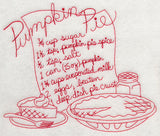 Pumpkin Pie
¾ cup sugar
1 tsp. pumpkin pie spice
½ tsp. salt
1 can (15 oz) pumpkin
1¼ cups evaporated milk
2 eggs, beaten
1 deep dish pie crust